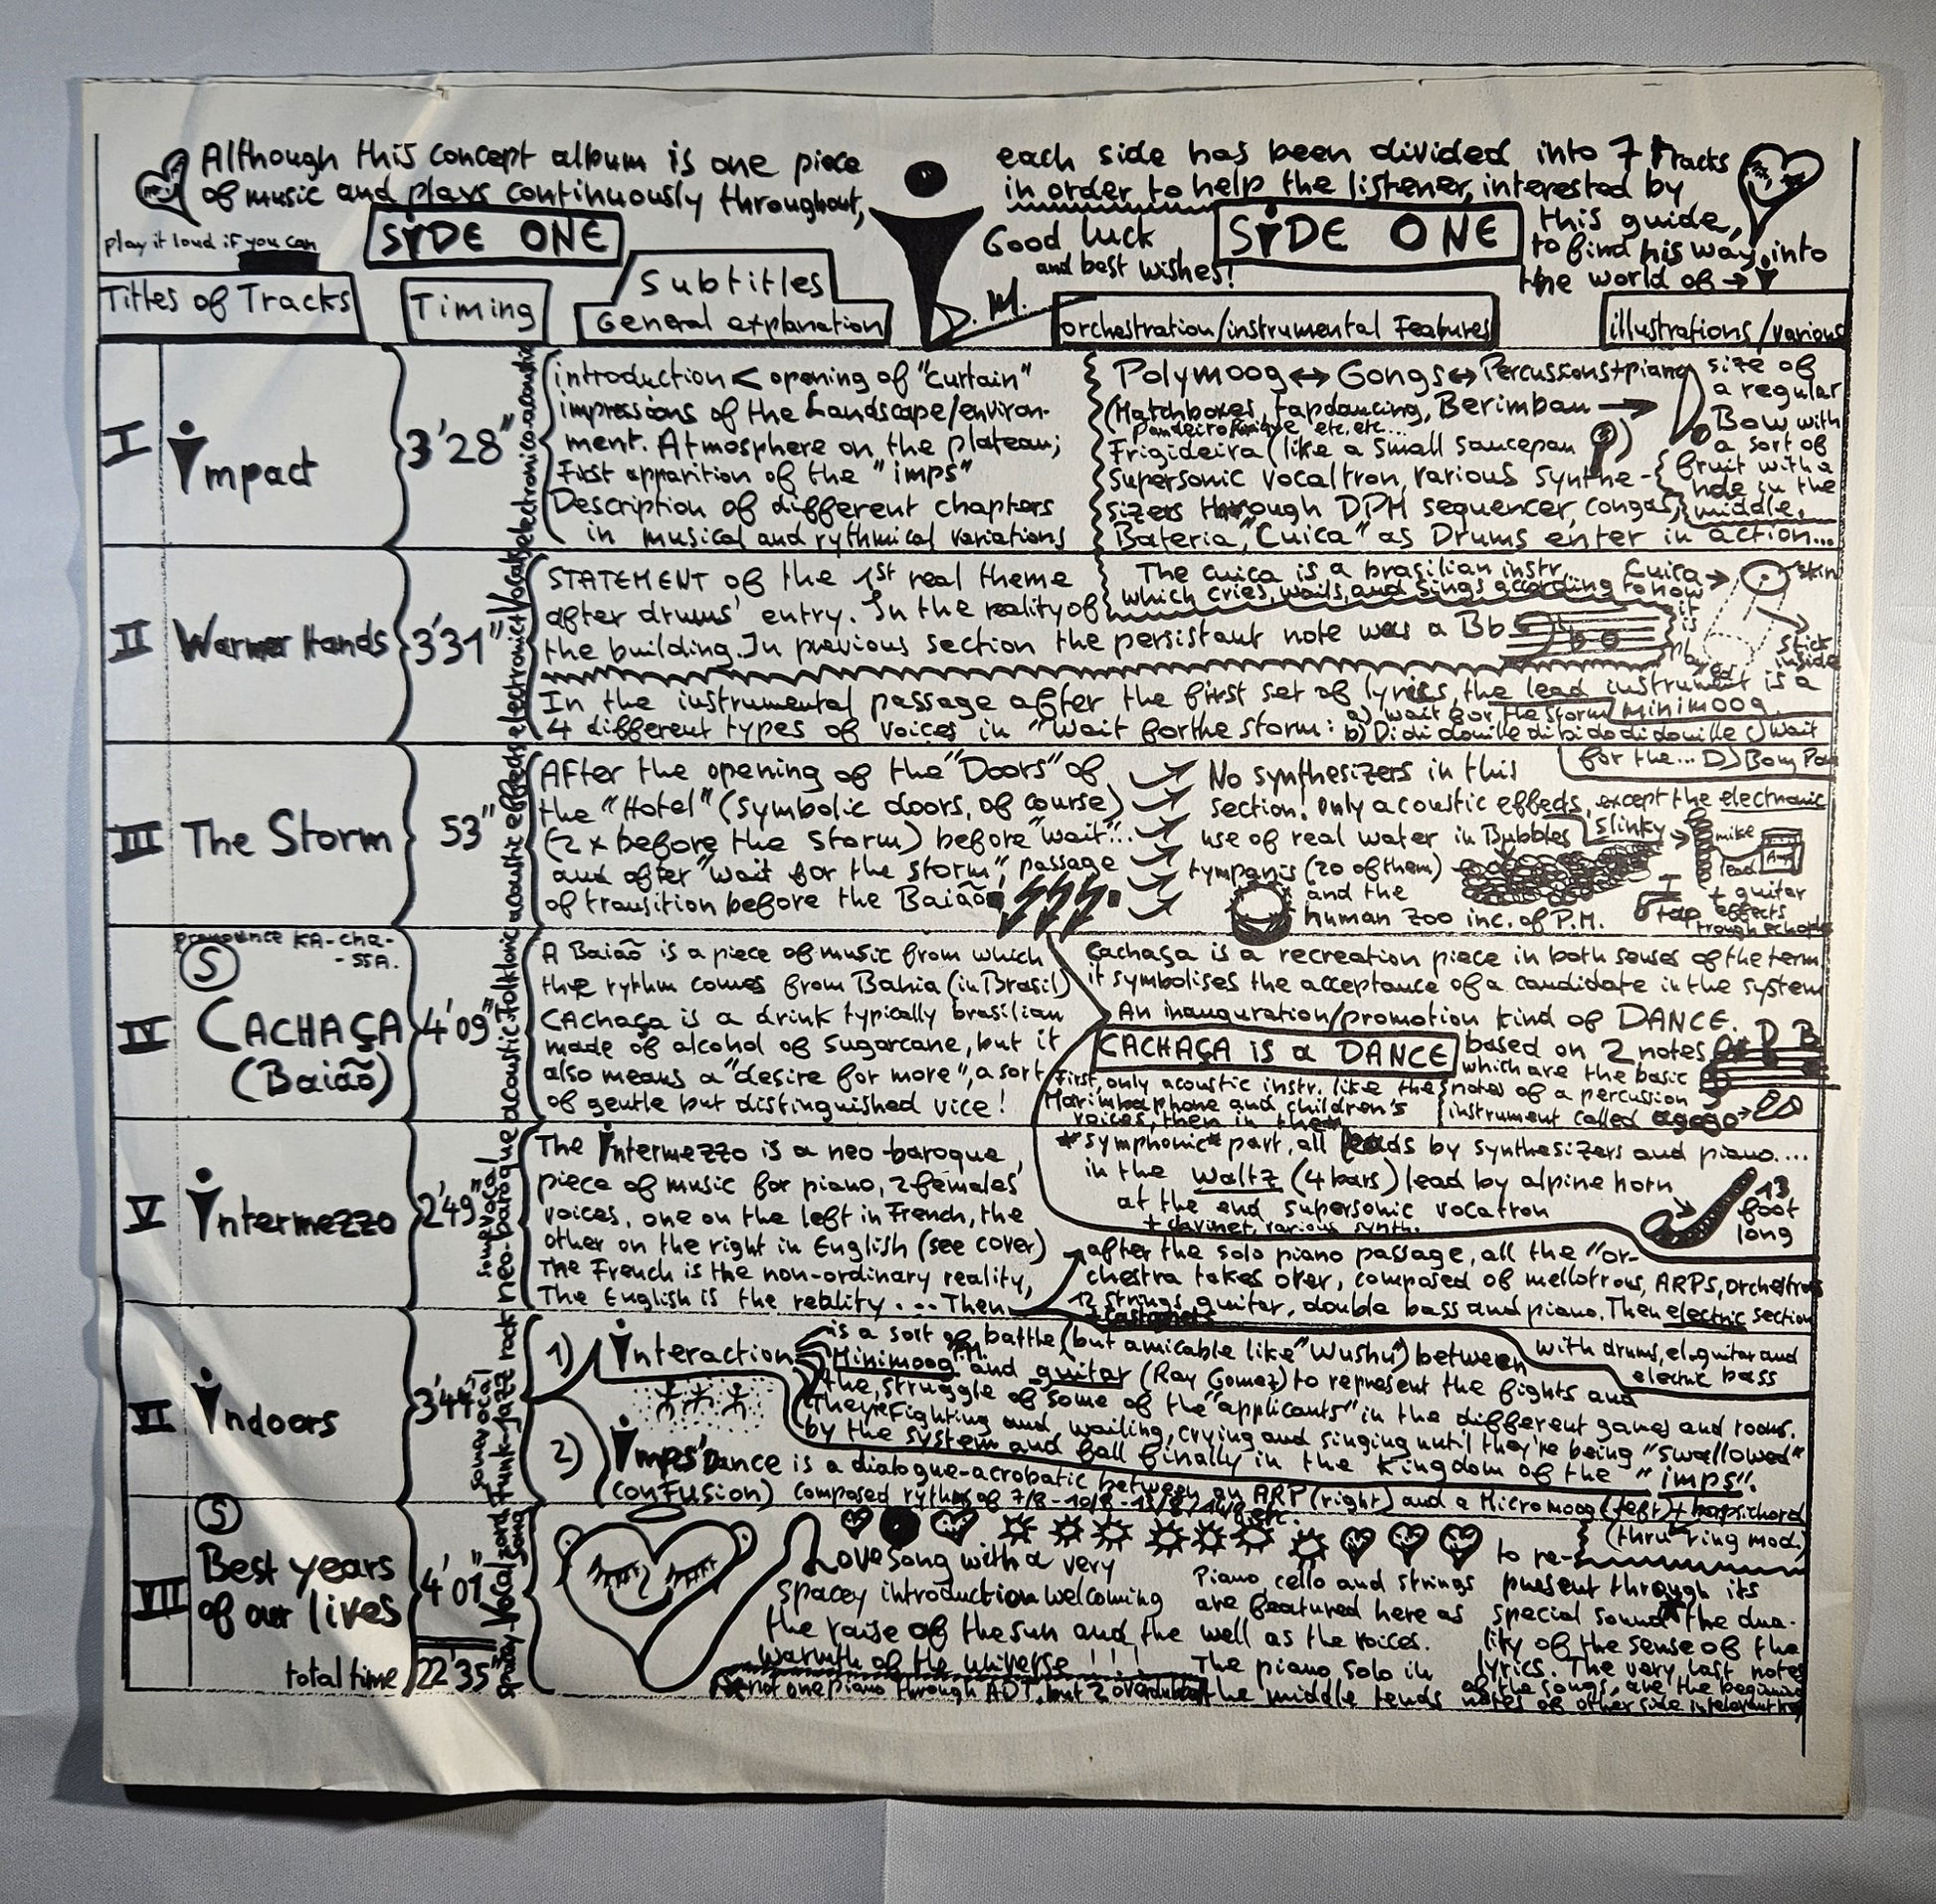 Although this concept album is one piece
of music and plays continuously throughout,
each side has been divided into 7 tracks
in order to help the listener, interested by
this guide,
to find his way into
the world of → i
play it loud if you can
SiDE ONE
Good luck
and best wishes!
P. M.
SiDE ONE
Titles of Tracks
Timing
Subtitles
General explanation
orchestration/instrumental Features
illustrations/various
I
impact
3'28"
introduction < opening of "curtain"
impressions of the Landscape/environ-
ment. Atmosphere on the plateau;
First apparition of the "imps"
Description of different chapters
in musical and rythmical variations
Polymoog ↔ Gongs ↔ Percussions+piano
(Matchboxes, tapdancing, Berimbau →
Pandeiro etc, etc...
Frigideira (like a small saucepan )
supersonic vocaltron, various synthe-
sizers through DPM sequencer, congas,
Bateria, "Cuica" as Drums enter in action...
size of
a regular
Bow with
a sort of
fruit with a
hole in the
middle.
II
Warmer Hands
3'31"
STATEMENT of the 1st real theme
after drums' entry. In the reality of
the building. In previous section the persistant note was a Bb
The cuica is a brasilian instr.
which cries, wails, and sings according to how
it
is
played
Cuica →
skin
stick
inside
In the instrumental passage after the first set of lyrics, the lead instrument is a
minimoog
4 different types of voices in "Wait for the storm: a) wait for the storm
b) Di di douille di bi do di douille c) wait
for the... D) Bom Pa
III
The Storm
53"
After the opening of the "Doors" of
the "Hotel" (symbolic doors, of course)
(2 x before the storm) before "wait"...
and after "wait for the storm", passage
of transition before the Baião
No synthesizers in this
section! only acoustic effects, except the electronic
use of real water in Bubbles
tympanis (20 of them)
and the
human zoo inc. of P.M.
slinky →
mike
lead
Amp
+ guitar
effects
trough echoplex
tap
IV
pronounce KA-cha-
-SSA.
S
CACHAÇA
(Baião)
4'09"
A Baião is a piece of music from which
the rythm comes from Bahia (in Brasil)
CAchaça is a drink typically brasilian
made of alcohol of sugarcane, but it
also means a "desire for more", a sort
of gentle but distinguished vice!
Cachaça is a recreation piece in both senses of the term
it symbolises the acceptance of a candidate in the system
An inauguration/promotion kind of DANCE.
CACHAÇA iS a DANCE
based on 2 notes
which are the basic
notes of a percussion
instrument called agogo →
D B
First, only acoustic instr. like the
Marimbaphone and children's
voices, then in the
*symphonic* part, all leads by synthesizers and piano....
in the waltz (4 bars) lead by alpine horn
at the end supersonic vocatron
+ clavinet, various synth.
13
foot
long
V
intermezzo
2'49"
The intermezzo is a neo-baroque
piece of music for piano, 2 females'
voices, one on the left in French, the
other on the right in English (see cover)
The French is the non-ordinary reality,
The English is the reality.... Then
after the solo piano passage, all the "or-
chestra takes over, composed of mellotrons, ARPS, orchestron
12 strings guitar, double bass and piano. Then electric section
+ castanets
with drums, el. guitar and
electric bass
VI
indoors
3'44"
1) interaction
is a sort of battle (but amicable like "Wushu") between
Minimoog P.M. and guitar (Ray Gomez) to represent the fights and
the struggle of some of the "applicants" in the different games and rooms.
They're Fighting and wailing, crying and singing until they're being "swallowed"
by the system and fall finally in the Kingdom of the "imps".
2) imps' Dance is a dialogue-acrobatic between an ARP (right) and a Micromoog (left) + harpsichord
(confusion) composed rythms of 7/8 - 10/8 - 15/8 etc.
(thru ring mod.)
VII
S
Best years
of our lives
4'01"
total time
22'35"
Love song with a very
spacey introduction welcoming
the raise of the sun and the
warmth of the universe!!!
not one piano through ADT, but 2 overdubs
Piano, cello and strings
are featured here as
well as the voices.
The piano solo in
the middle tends
to re-
present through its
special sound the dua-
lity of the sense of the
lyrics. The very last notes
of the songs, are the beginning
notes of other side
electronico-acoustic
electronic + Vocals
acoustic effects
acoustic-Folkloric
some vocal
neo-baroque
some vocal
Funk-jazz rock
spacey-Vocal
song